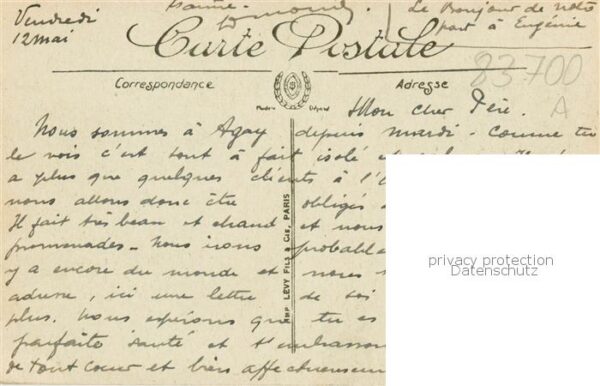 Vendredi
12 mai
Le Bonjour de notre
part à Eugénie
Carte Postale
Correspondance
Adresse
83700
A
Mon cher Père.
Nous sommes à Agay depuis mardi - comme tu
le vois c'est tout à fait isolé
a plus que quelques clients à l'
nous allons donc être obligés
Il fait très beau et chaud et nous
promenades. Nous irons probable
y a encore du monde et nous
adresse, ici une lettre de
plus. Nous espérons que tu es
parfaite santé et t'embrasson
de tout cœur et bien affectueusem
IMP. LÉVY FILS & Cie, PARIS
privacy protection
Datenschutz